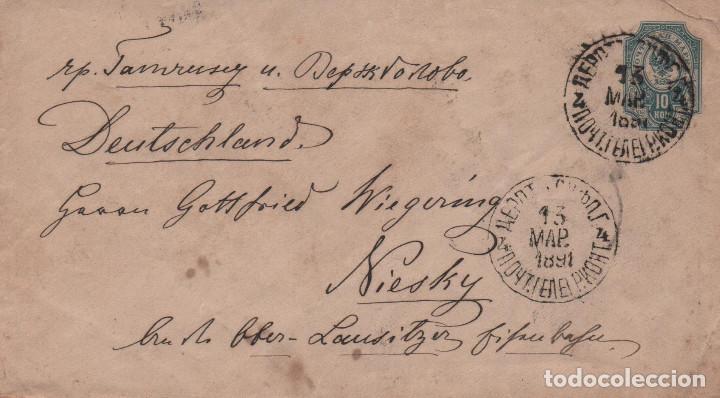 чр. Гатчису и. Вержболово.
Deutschland.
Herrn Gottfried Wiegering
Niesky
Ober-Lausitzer Eisenbahn.
10
КОП
13
МАР.
1891
ПОЧТ.ТЕЛЕГР.КОНТ.
4
ДЕРПТ
13
МАР.
1891
ПОЧТ.ТЕЛЕГР.КОНТ.
4
todocoleccion.net